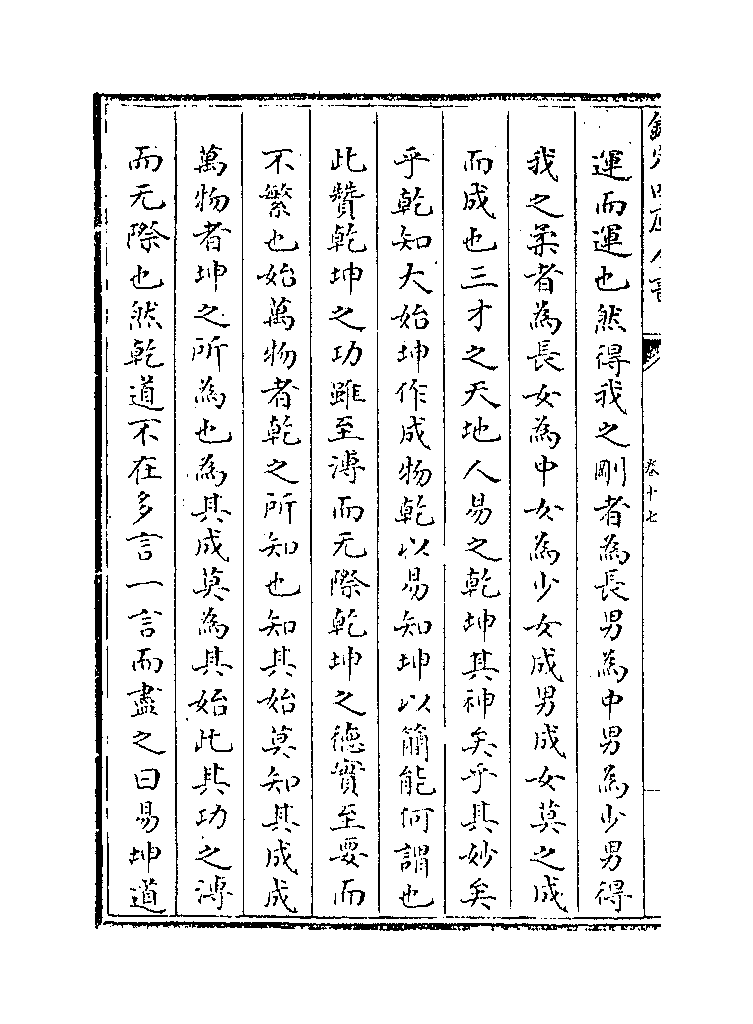 欽定四庫全書
卷十七
運而運也然得我之剛者為長男為中男為少男得
我之柔者為長女為中女為少女成男成女莫之成
而成也三才之天地人易之乾坤其神矣乎其妙矣
乎乾知大始坤作成物乾以易知坤以簡能何謂也
此贊乾坤之功雖至溥而无際乾坤之德實至要而
不繁也始萬物者乾之所知也知其始莫知其成成
萬物者坤之所為也為其成莫為其始此其功之溥
而无際也然乾道不在多言一言而盡之曰易坤道